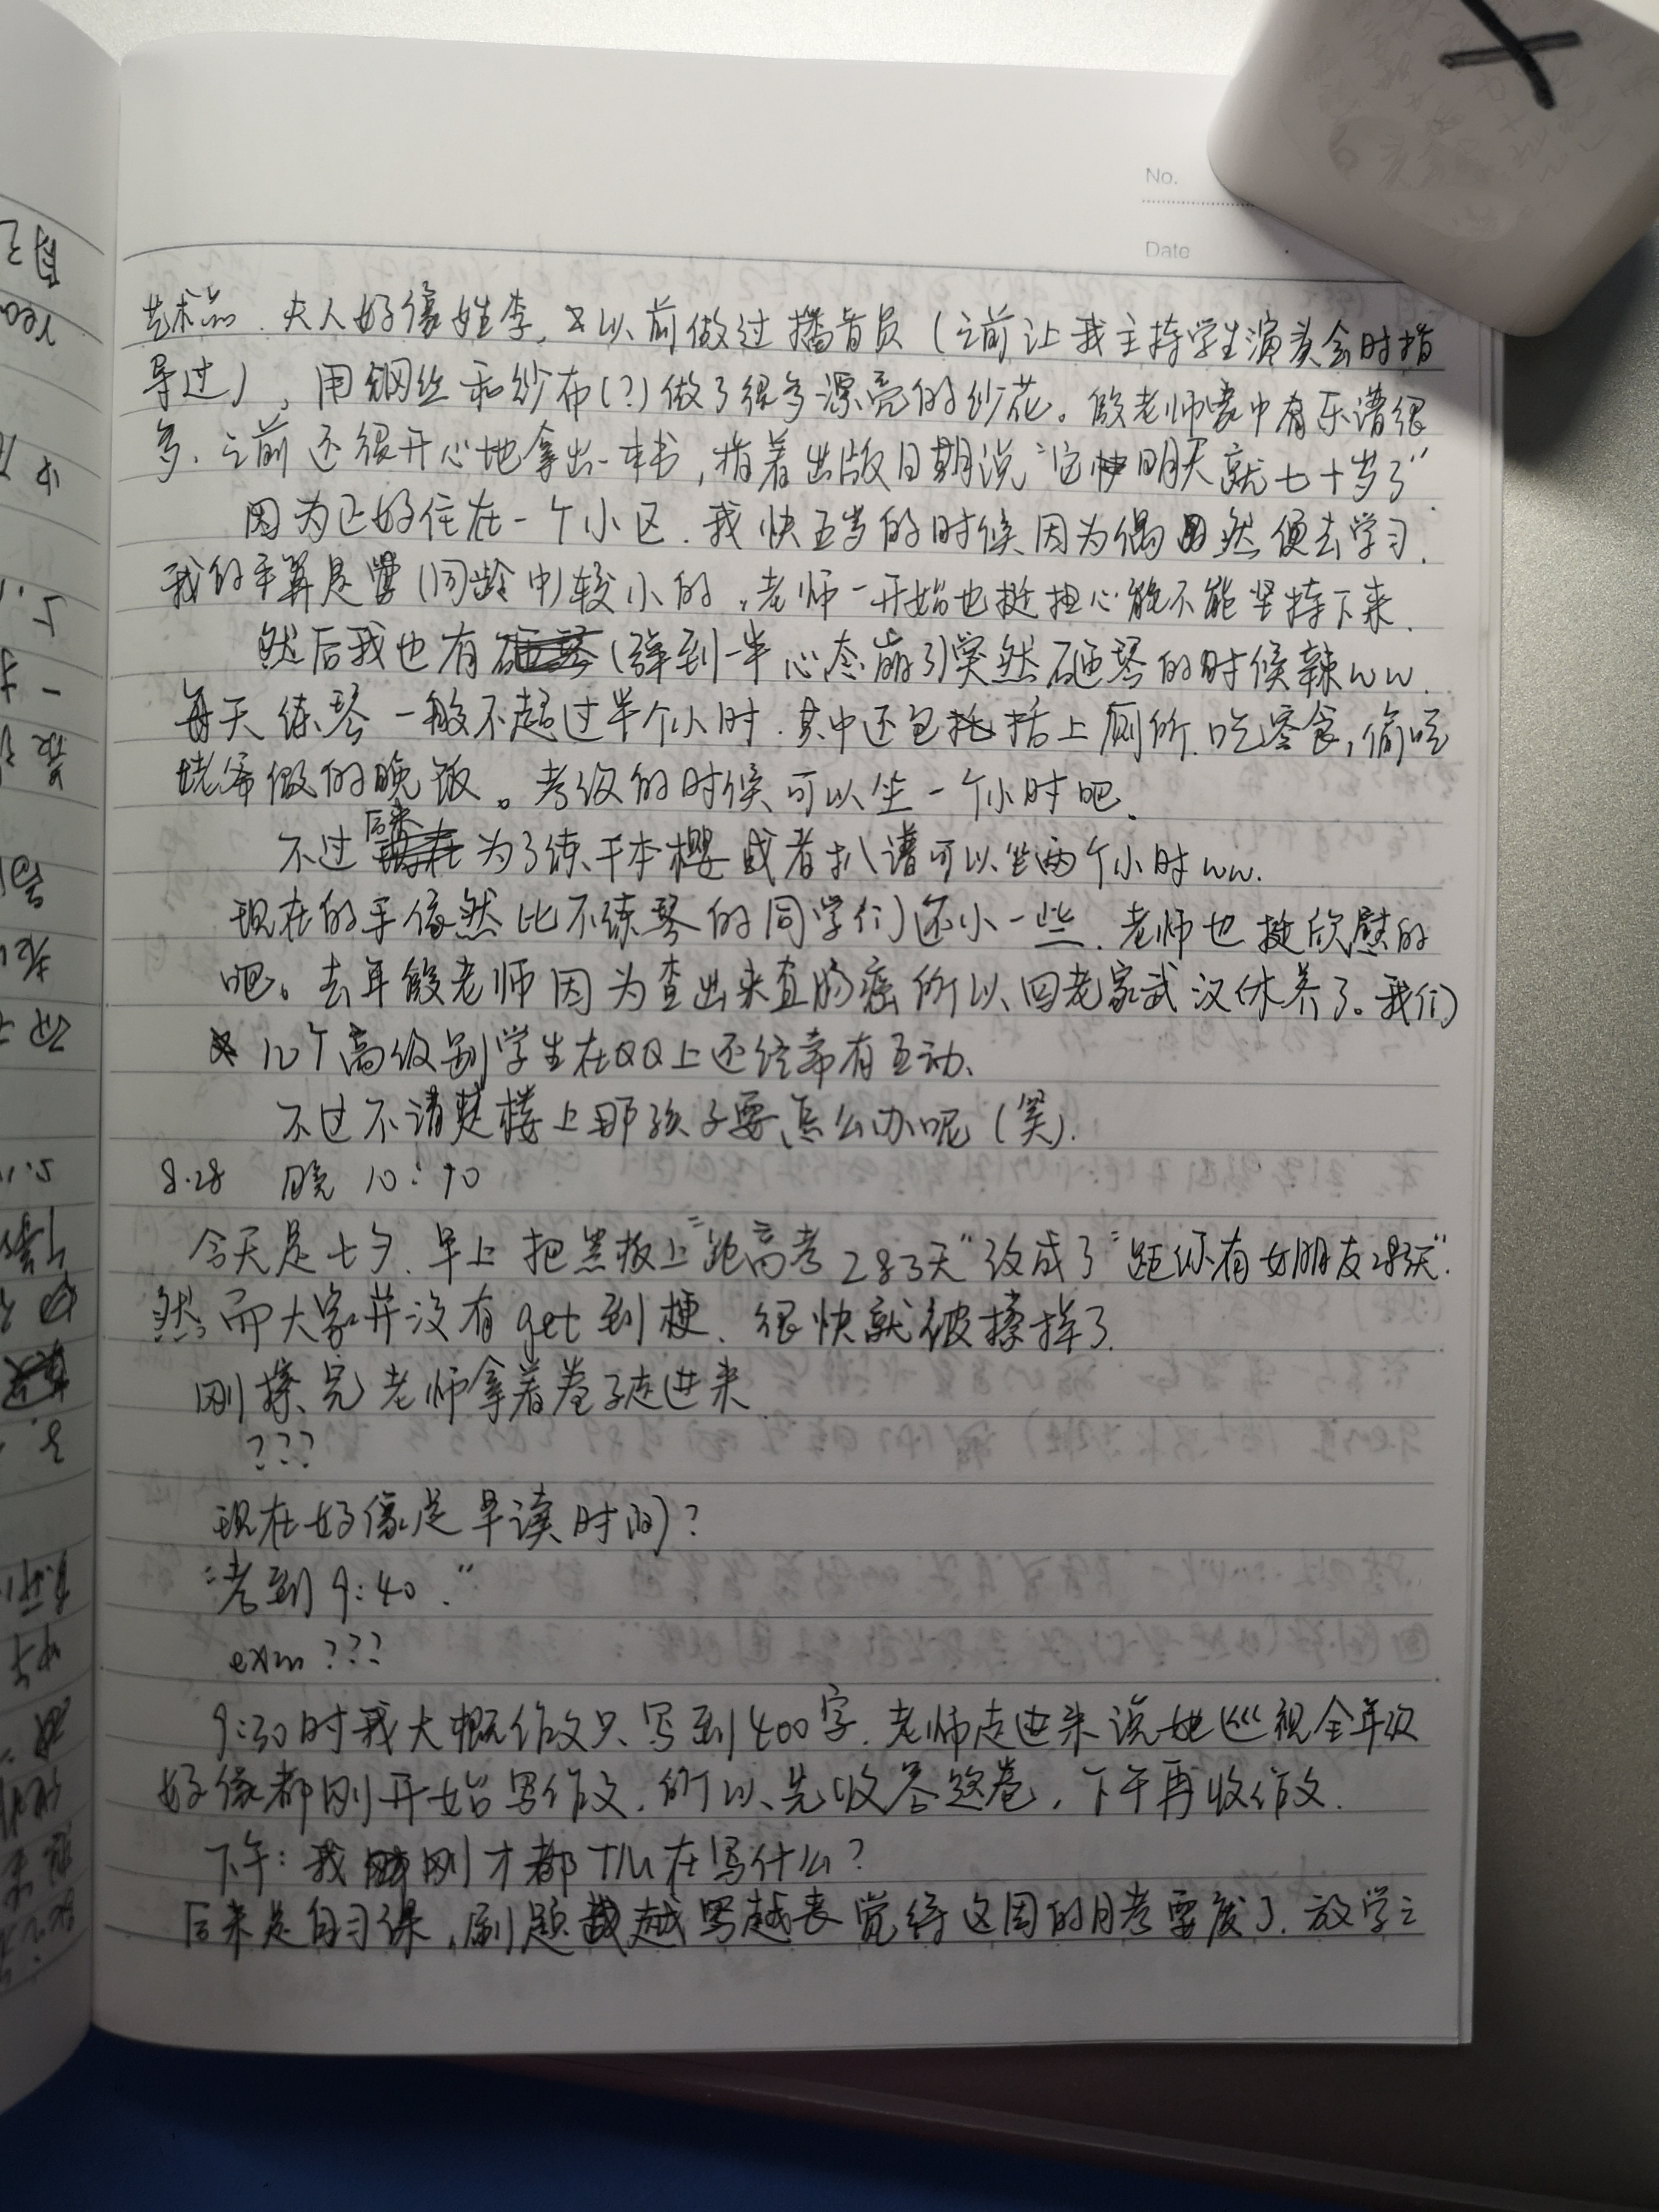 No.
Date
艺术品．夫人好像姓李，以前做过播音员（之前让我主持学生演奏会时指
导过），用钢丝和纱布(?)做了很多漂亮的纱花。殷老师家中有乐谱很
多．之前还很开心地拿出一本书，指着出版日期说“它明天就七十岁了”
因为正好住在一个小区．我快五岁的时候因为偶然便去学习．
我的手算是(同龄中)较小的．老师一开始也挺担心能不能坚持下来．
然后我也有(弹到一半心态崩了)突然砸琴的时候辣ww．
每天练琴一般不超过半个小时．其中还包括上厕所．吃零食，偷吃
姥爷做的晚饭。考级的时候可以坐一个小时吧．
不过后来为了练千本樱或者扒谱可以坐两个小时ww．
现在的手依然比不练琴的同学们还小一些．老师也挺欣慰的
吧。去年殷老师因为查出来直肠癌所以回老家武汉休养了。我们
几个高级别学生在QQ上还经常有互动．
不过不清楚楼上那孩子要怎么办呢（笑）．
8.28 晚 10:10
今天是七夕．早上把黑板上“距高考283天”改成了“距你有女朋友283天”．
然而大家并没有get到梗．很快就被擦掉了．
刚擦完老师拿着卷子走进来
???
现在好像是早读时间?
“考到9:40．”
exm???
9:30时我大概作文只写到400字．老师走进来说她巡视全年级
好像都刚开始写作文．所以先收答题卷，下午再收作文．
下午：我刚才都TM在写什么？
后来是自习课，刷题越写越丧觉得这周的月考要废了．放学之